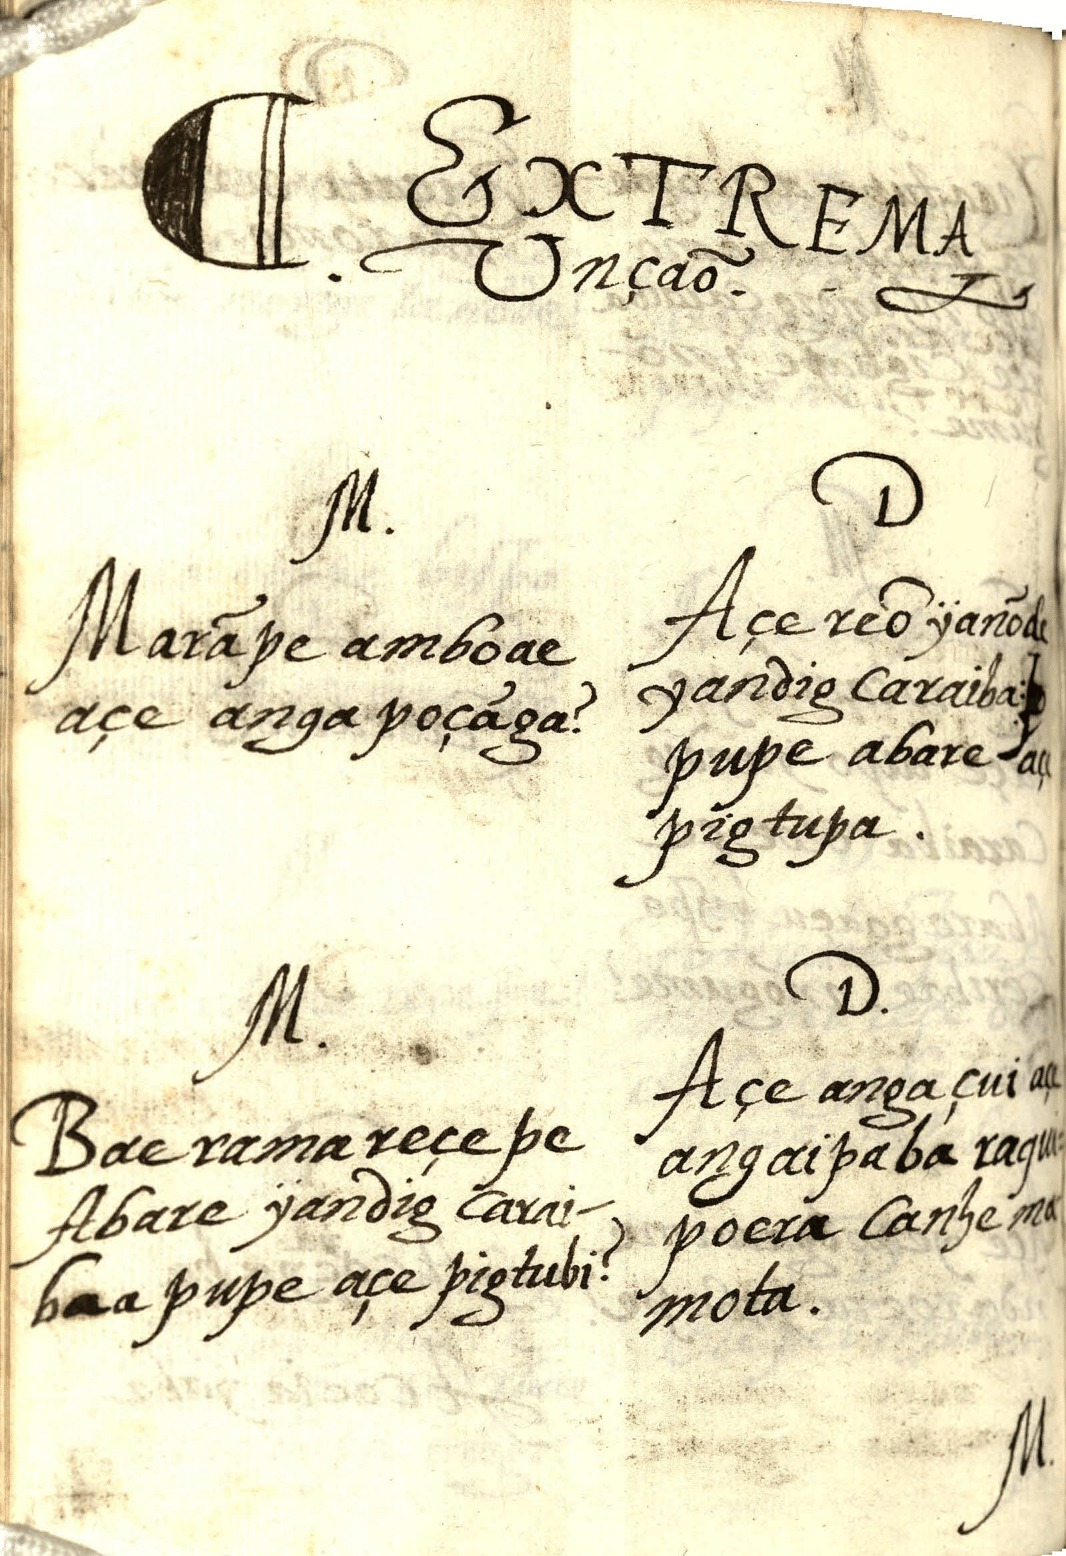 ¶ EXTREMA
Unçaõ.
M.
Marãpe amboae
açe anga poçãga?
D
Açe reõ ÿanõde
yandig Caraiba
pupe abare
pigtupa.
M.
Bae rama reçe pe
Abare ÿandig Carai-
baa pupe açe pigtubi?
D.
Açe anga çui açe
angaipaba raqui-
poera Canhe ma
mota.
M.